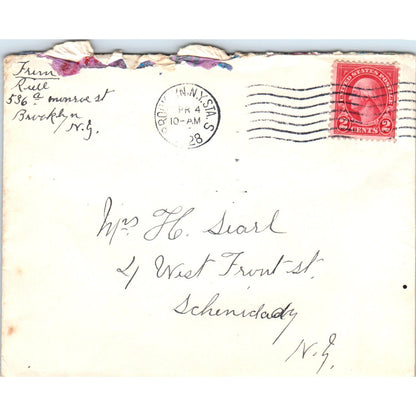 From
Rull
536a monroe st
Brooklyn
N.Y.
BROOKLYN.N.Y.STA.S
APR 4
10-AM
28
UNITED STATES POSTAGE
2 CENTS 2
Mrs H. Searl
4 West Front st.
Schenidady
N.Y.